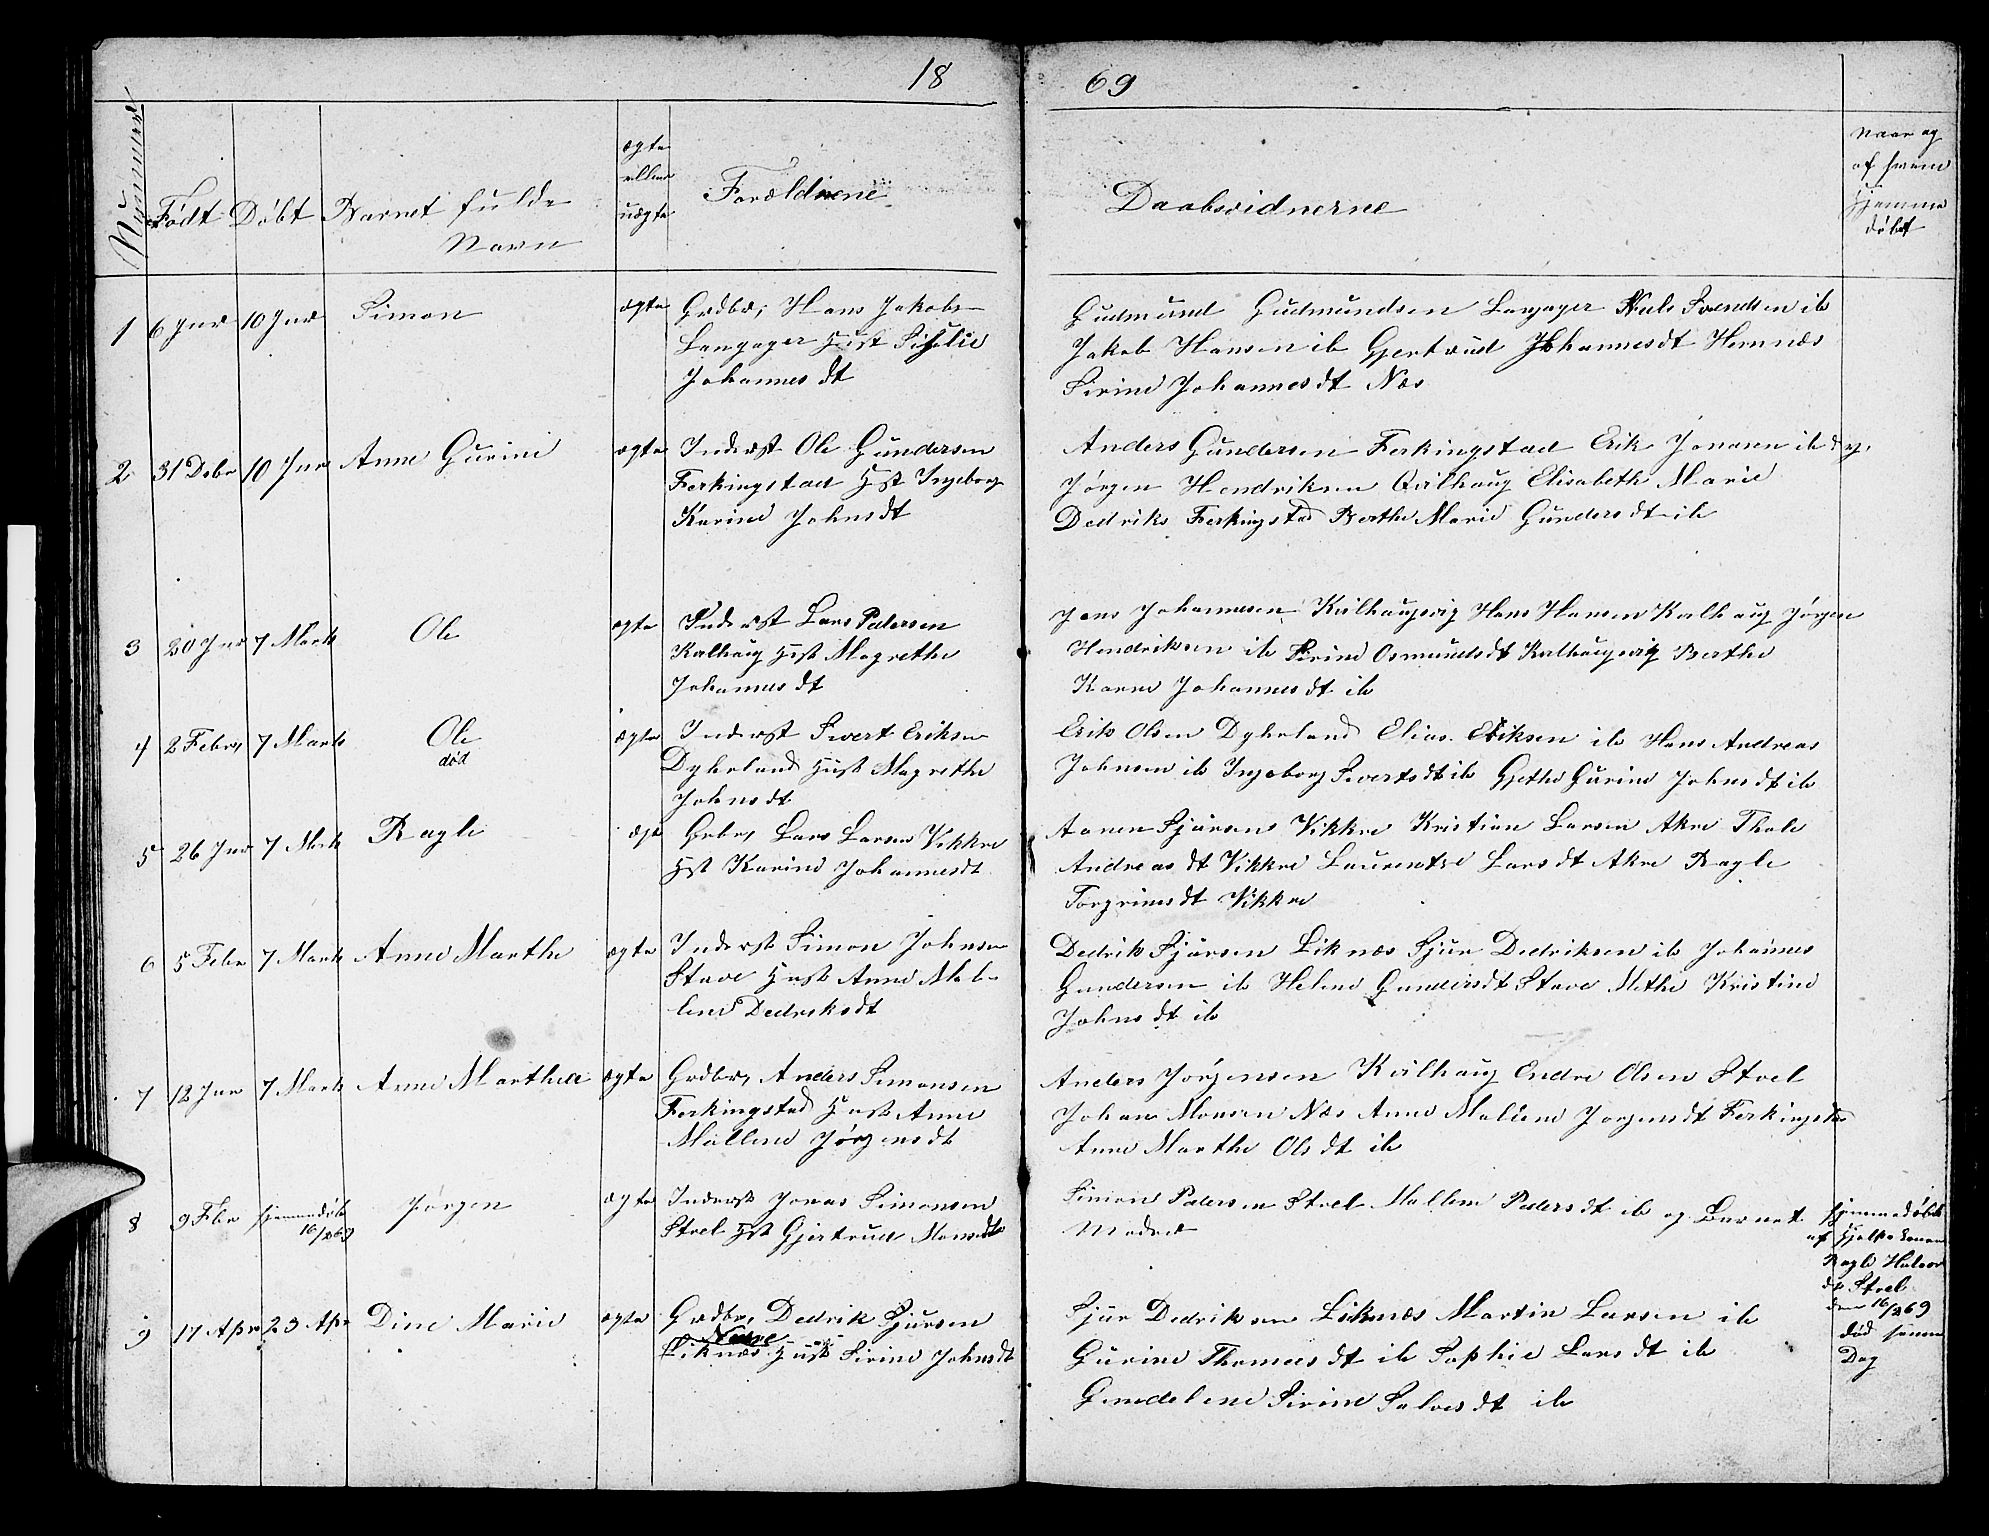 18 69
Nummer
Født Døbt Barnet fulde Navn
ægte eller uægte
Forældrene
Daabsvidnerne
Naar og af hvem hjemme døbt
1 6 Jnr 10 Jnr Simon ægte Grdbr, Hans Jakobs
Langager Hust
Johannesdt
Gudmund Gudmundsen Langager Niels Svendsen ib
Jakob Hansen ib Gjertrud Johannesdt Hemnæs
Sirine Johannesdt Næs
2 31 Debr 10 Jnr Anne Gurine ægte Inderst Ole Gundersen
Ferkingstad Hst Ingeborg
Karine Johnsdt
Anders Gundersen Ferkingstad Erik Jonasen ib
Jørgen Hendriksen Qvilhaug Elisabeth Marie
Dedriks Ferkingstad Berthe Marie Gundersdt ib
3 20 Jnr 7 Marts Ole ægte Inderst Lars Pedersen
Kvilhaug Hust Magrethe
Johannesdt
Jens Johannesen Kvilhaugsvig Hans Hansen Kvilhaug Jørgen
Hendriksen ib Sirine Osmundsdt Kvilhaugsvig Berthe
Karine Johannesdt ib
4 2 Febr, 7 Marts Ole
død
ægte Inderst Sivert Eriksen
Dyheland Hust Magrethe
Johnsdt
Erik Olsen Dyheland Elias Eriksen ib Hans Andreas
Johnsen ib Ingeborg Sivertsdt ib Gjethe Gurine Johnsdt ib
5 26 Jnr 7 Marts Ragle ægt Grbr, Lars Larsen Vikkre
Hst Karine Johannesdt
Aanen Sjursens Vikkre Kristian Larsen Akre Thale
Andreasdt Vikkre Laurentse Larsdt Akre Ragle
Torgrimsdt Vikkre
6 5 Febr 7 Marts Anne Marthe ægte Inderst Simon Johnsen
Stave Hust Anne Mal-
lene Dedriksdt
Dedrik Sjursen Liknæs Sjur Dedriksen ib Johannes
Gundersen ib Helene Gundersdt Stave Methe Kristine
Johnsdt ib
7 12 Jnr 7 Marts Anne Marthea ægte Grdbr, Anders Simonsen
Ferkingstad Hust Anne
Mallene Jørgensdt
Anders Jørgensen Kvilhaug Endre Olsen Stol
Johan Monsen Næs Anne Malene Jørgensdt Ferkingstad
Anne Marthe Olsdt ib
8 9 Fbr hjemmedøbt
16/2 69
Jørgen ægte Inderst Jonas Simonsen
Stol Hst Gjertrud Monsdt
Simon Pedersen Stol Mallene Pedersdt ib og Barnet
Moder
hjemmedøbt
af Hjelpekonen
Ragle Halvor
dt Stol
den 16/2 69
død samme
Dag
9 17 Apr 23 Apr Dine Marie ægte Grdbr, Dedrik Sjursen
Liknæs Hust Sirine Johnsdt
Sjur Dedriksen Liknæs Martin Larsen ib
Gurine Thomasdt ib Sophie Larsdt ib
Gundelene Sirine Salvesdt ib